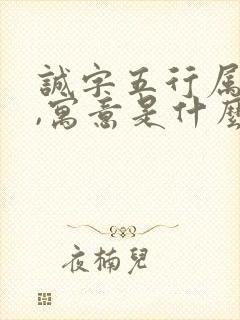 誠字五行属
,寓意是什麼
夜楠兒